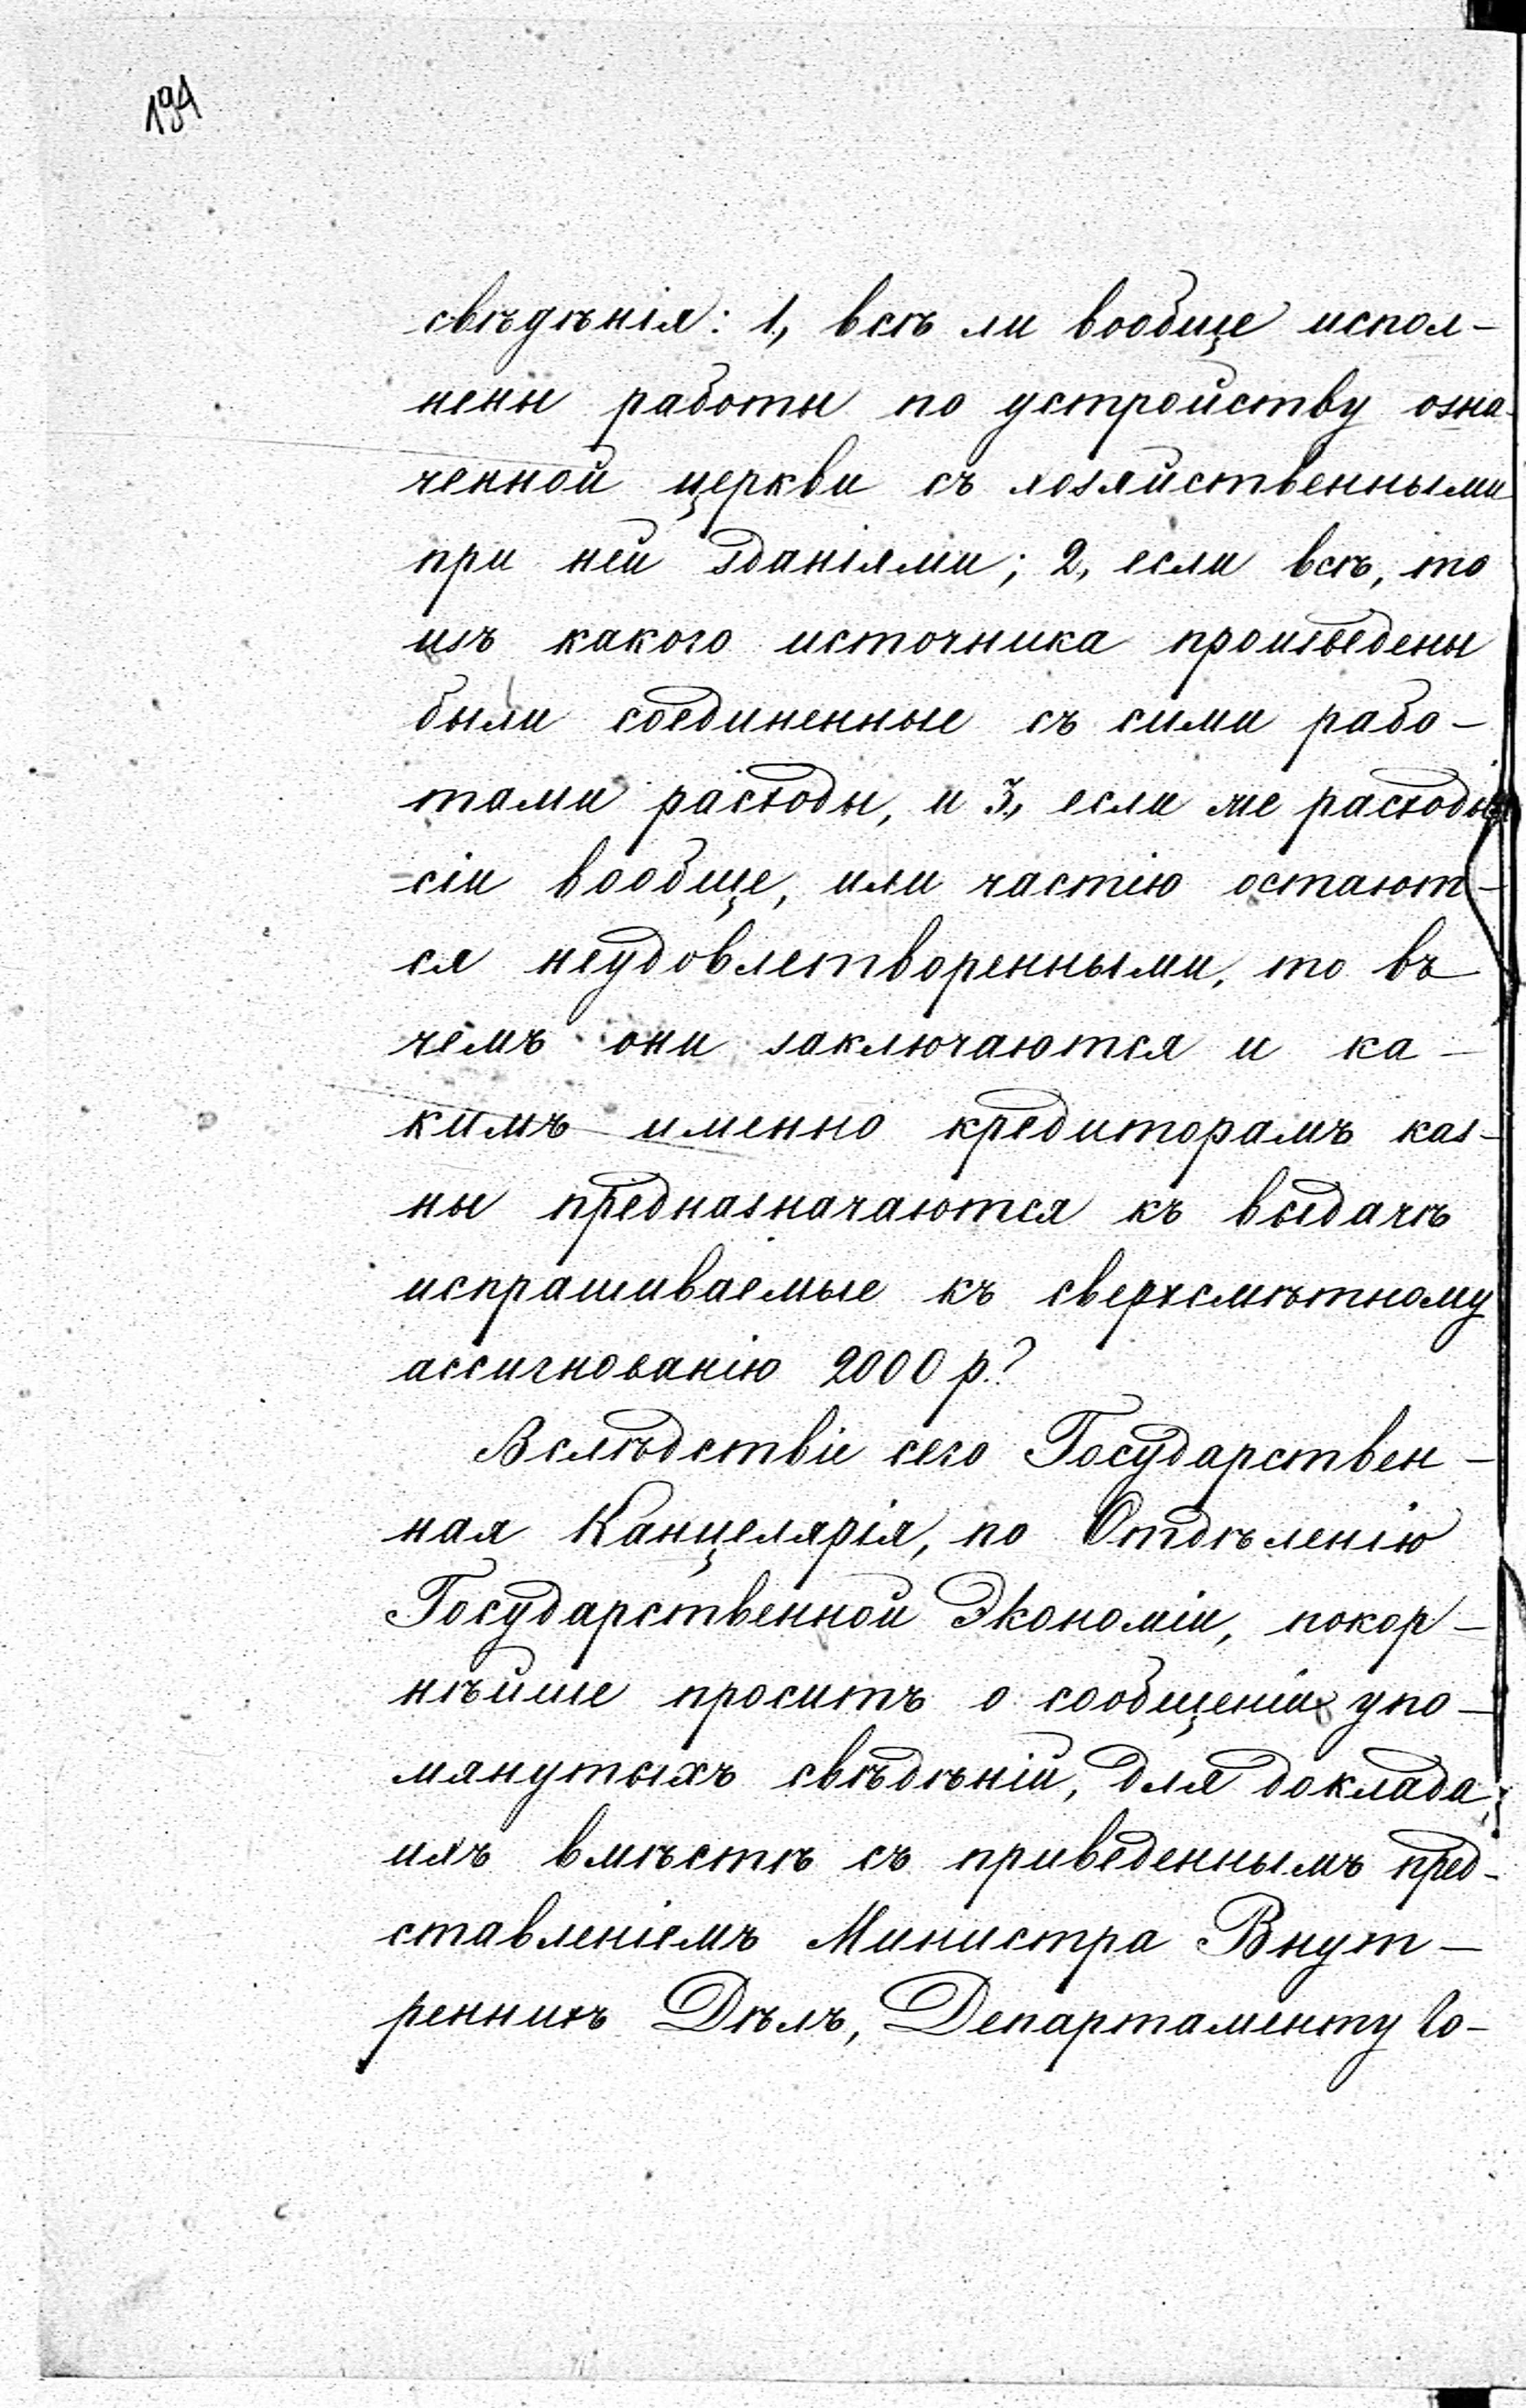 194
свѣдѣнія: 1, всѣ ли вообще испол-
нены работы по устройству озна-
ченной церкви съ хозяйственными
при ней зданіями; 2, если всѣ, то
изъ какого источника произведены
были соединенные съ сими рабо-
тами расходы, и 3, если же расходы
сіи вообще, или частію остают-
ся неудовлетворенными, то въ
чемъ они заключаются и ка-
кимъ именно кредиторамъ каз-
ны предназначаются къ выдачѣ
испрашиваемые къ сверхсмѣтному
ассигнованію 2000 р.?
Вслѣдствіе сего Государствен-
ная Канцелярія, по Отдѣленію
Государственной Экономіи, покор-
нѣйше проситъ о сообщеніи упо-
мянутыхъ свѣдѣній, для доклада
ихъ вмѣстѣ съ приведеннымъ пред-
ставленіемъ Министра Внут-
реннихъ Дѣлъ, Департаменту Го-